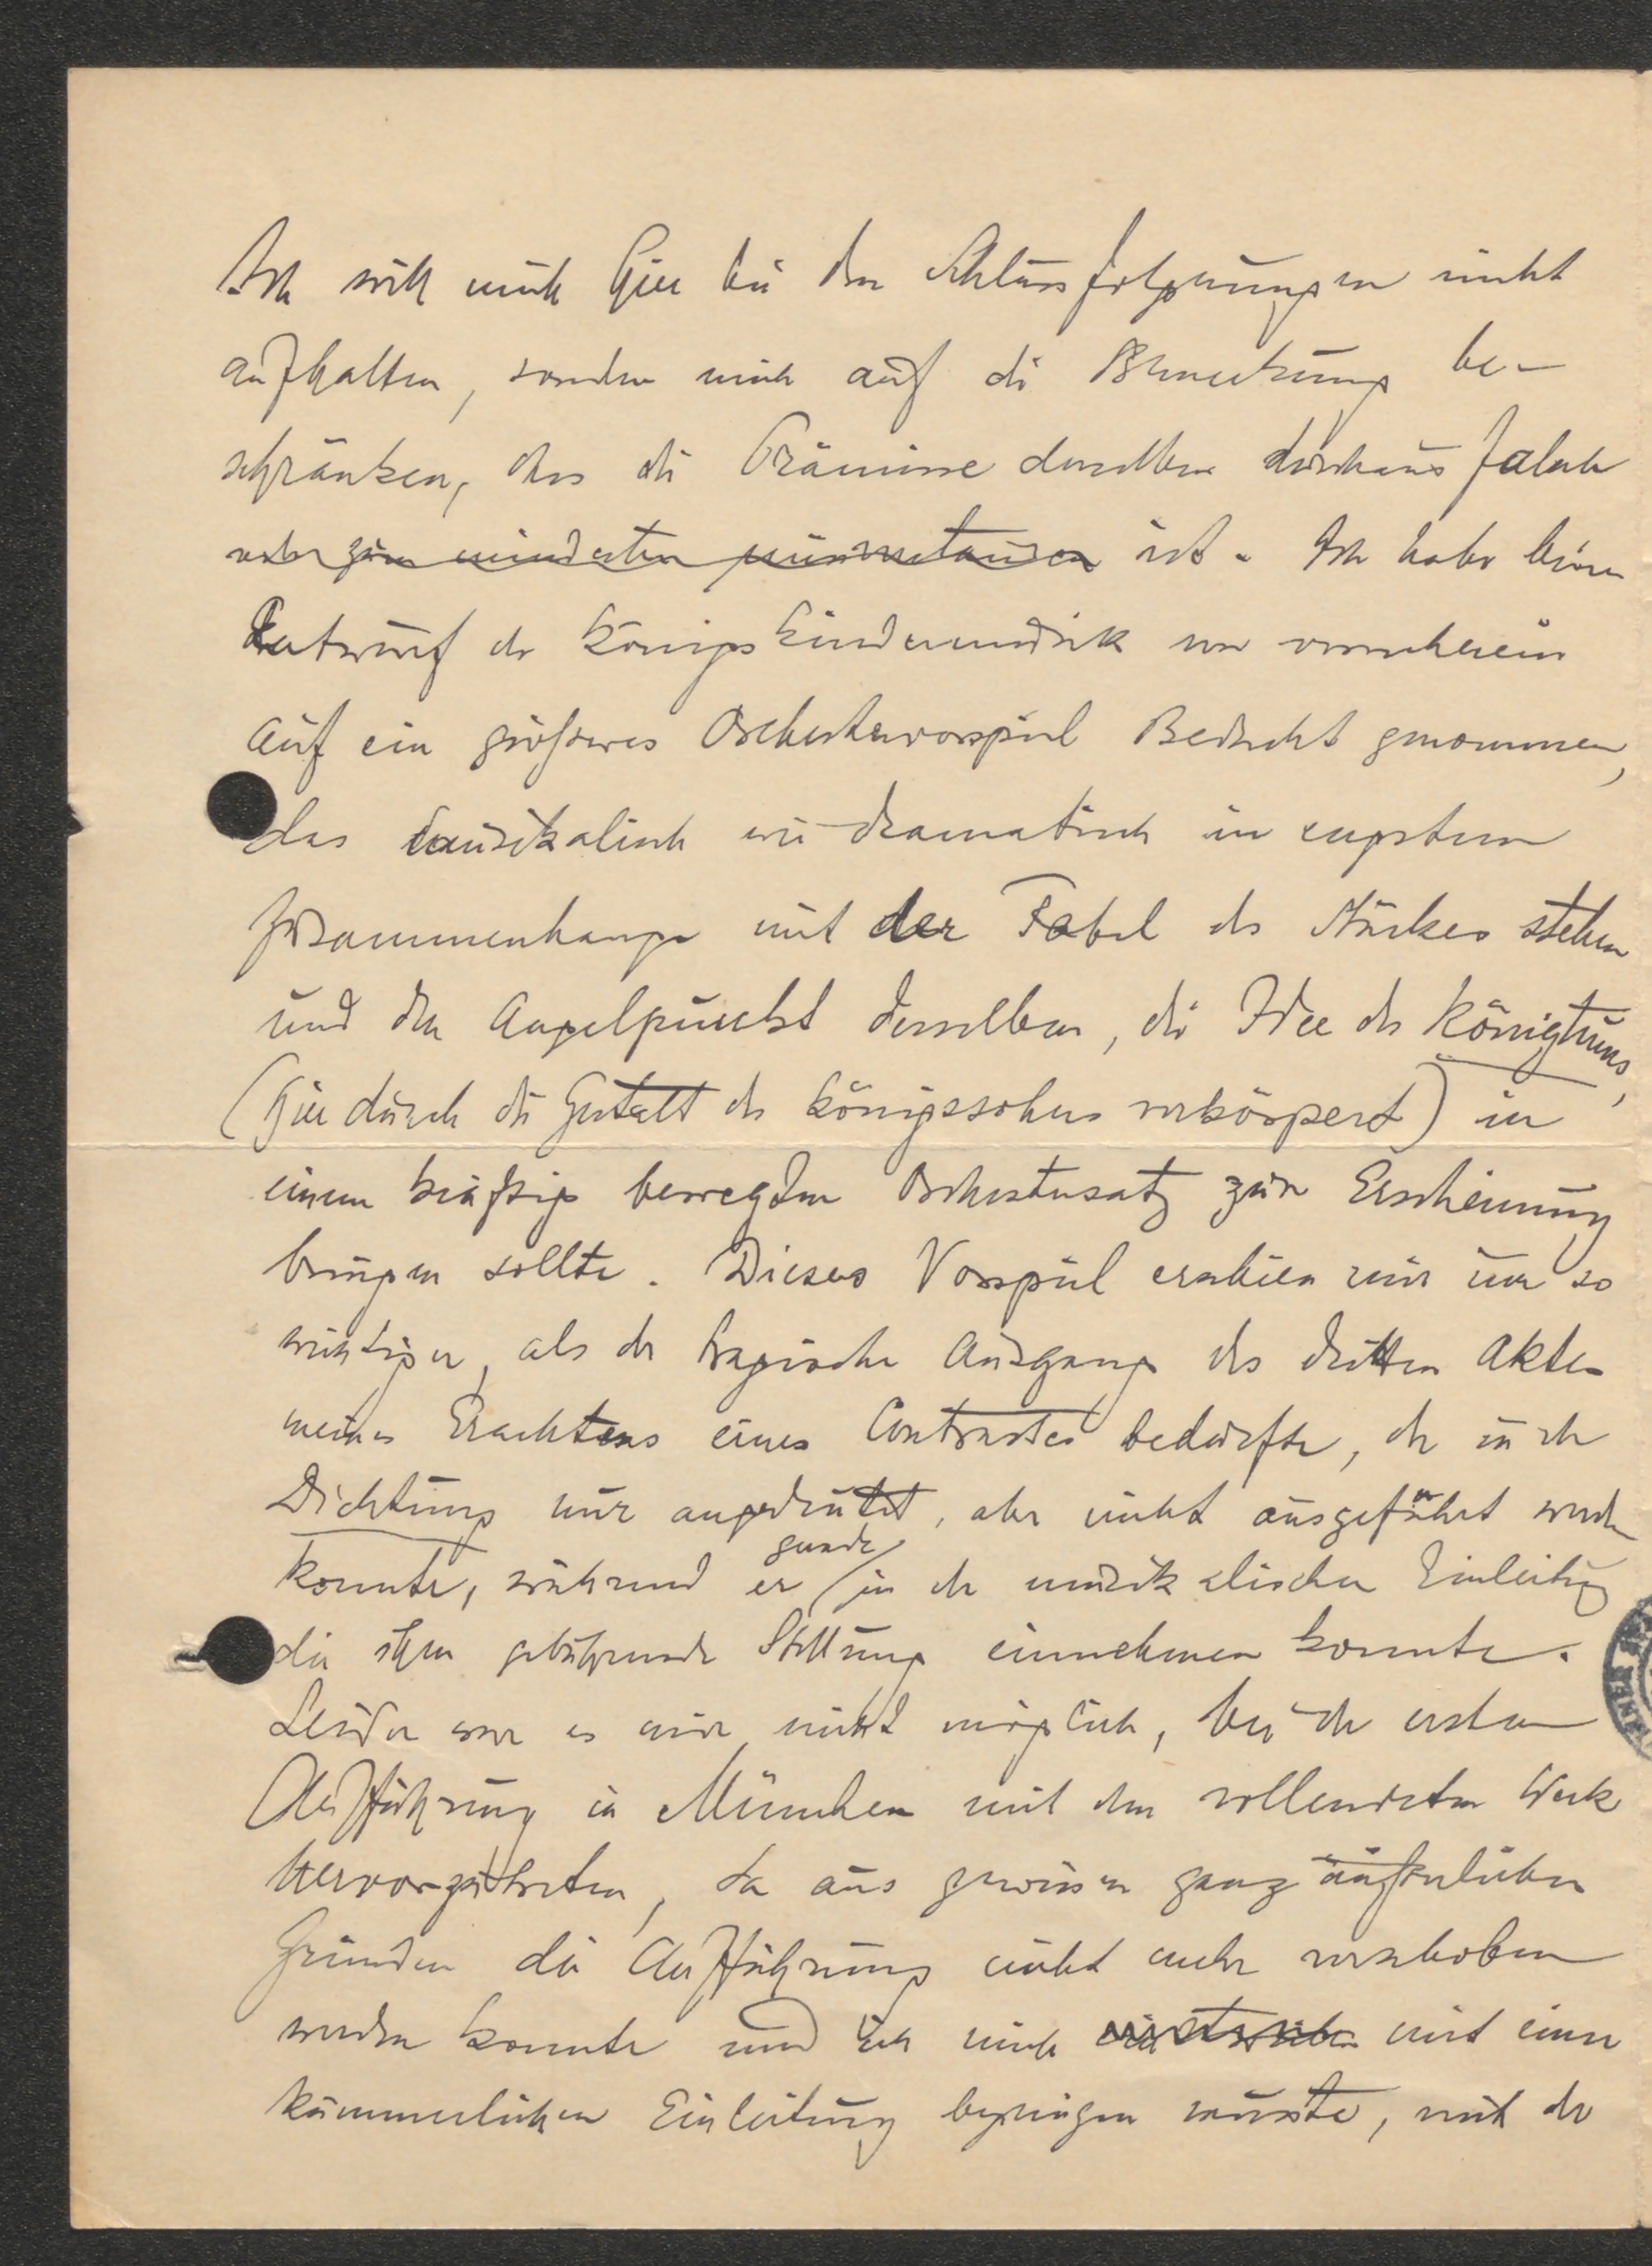 Ich will mich hier bei den Schlussfolgerungen nicht
aufhalten, sondern mich auf die Bemerkung be-
schränken, dass die Prämisse derselben durchaus falsch
oder zum mindesten missverstanden ist. Ich habe beim
Entwurf der Königskindermusik von vornherein
auf ein größeres Orchestervorspiel Bedacht genommen,
das musikalisch wie dramatisch in engstem
Zusammenhange mit der Fabel des Stückes stehen
und den Angelpunkt derselben, die Idee des Königtums,
(hier durch die Gestalt des Königssohns verkörpert) in
einem kräftig bewegten Orchestersatz zur Erscheinung
bringen sollte. Dieses Vorspiel erschien mir um so
wichtiger, als der tragische Ausgang des dritten Aktes
meines Erachtens eines Contrastes bedurfte, der in der
Dichtung nur angedeutet, aber nicht ausgeführt werden
konnte, während er gerade in der musikalischen Einleitung
die ihm gebührende Stellung einnehmen konnte.
Leider war es mir nicht möglich, bei der ersten
Aufführung in München mit dem vollendeten Werk
hervorzutreten, da aus gewissen ganz äußerlichen
Gründen die Aufführung nicht mehr verschoben
werden konnte und ich mich mit einer
kümmerlichen Einleitung begnügen musste, mit der